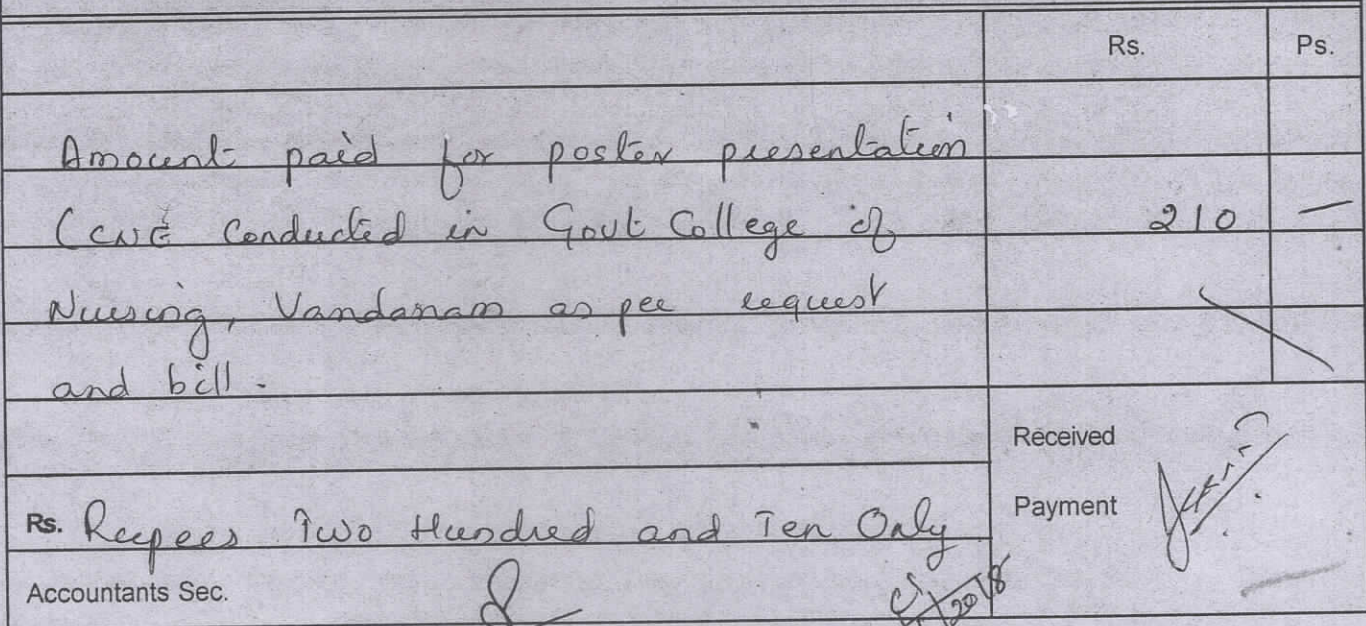 Rs. Ps.
Amount paid for poster presentation
(CNE Conducted in Govt College of 210 —
Nursing, Vandanam as per request
and bill.
Received
Payment
Rs. Rupees Two Hundred and Ten Only
Accountants Sec.
2018